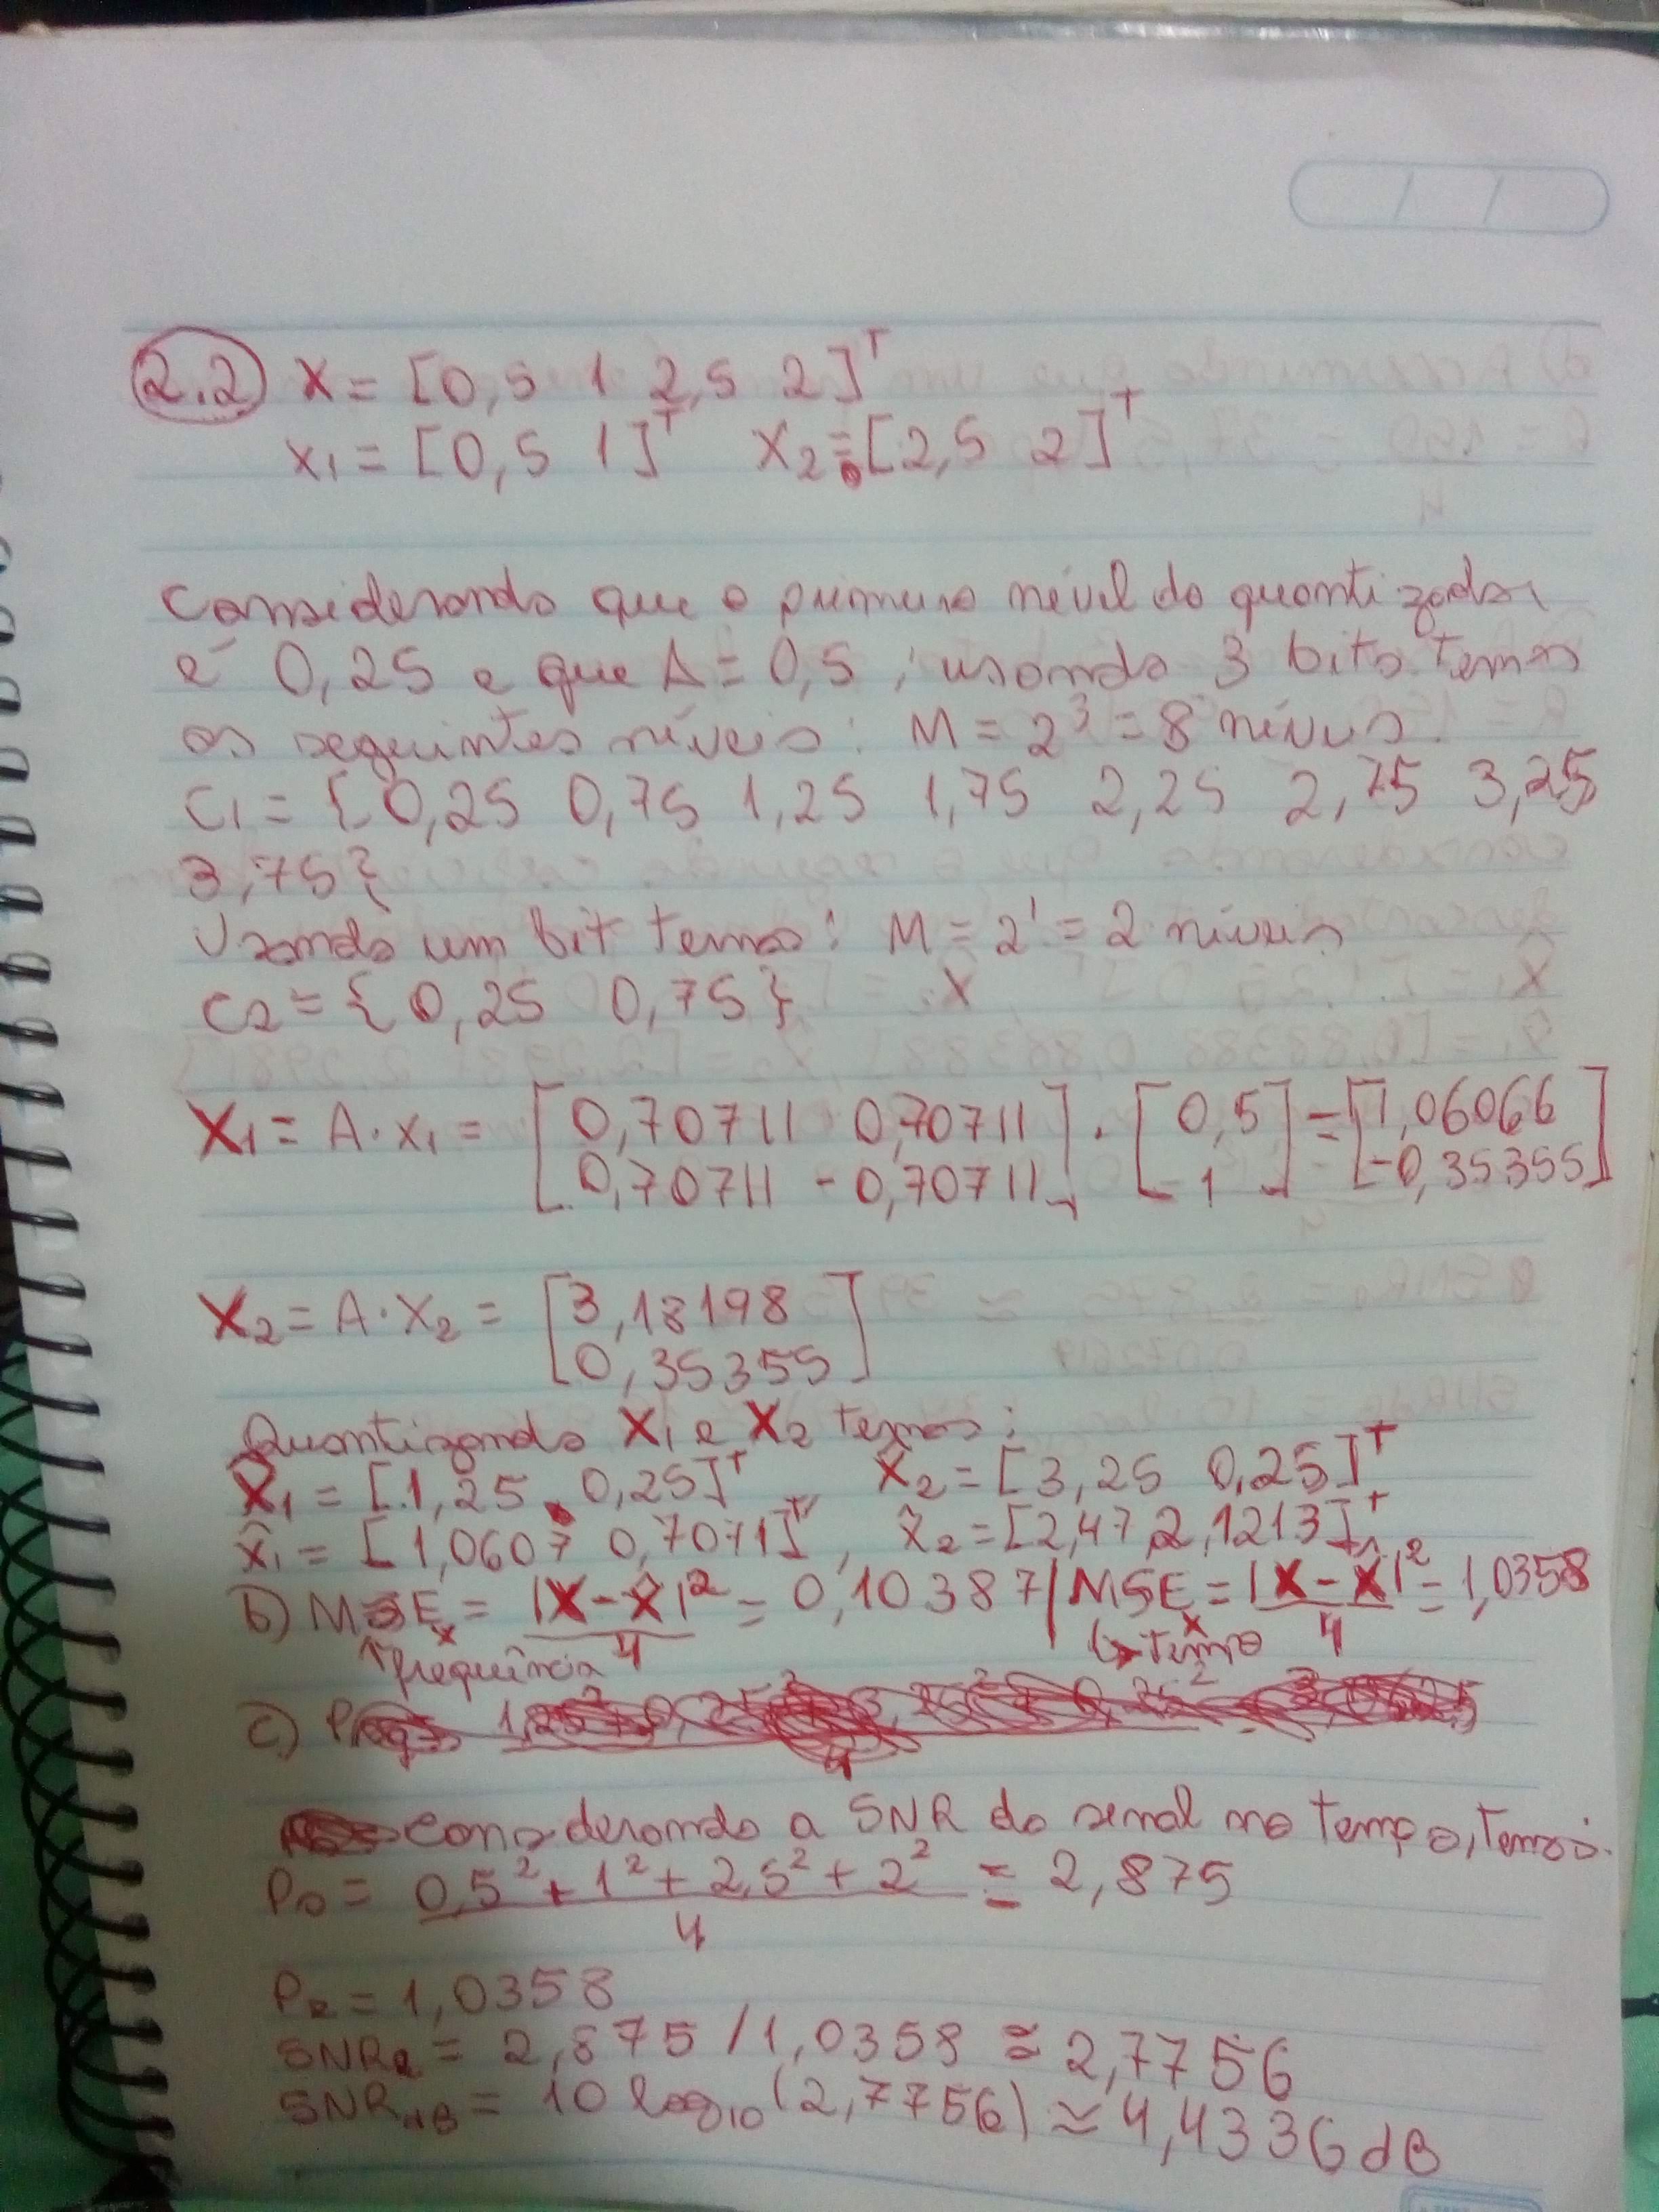 2.2 x = [0,5 1 2,5 2]ᵀ
x₁ = [0,5 1]ᵀ x₂ = [2,5 2]ᵀ
Considerando que o primeiro nível do quantizador
é 0,25 e que Δ = 0,5, usando 3 bits temos
os seguintes níveis: M = 2³ = 8 níveis.
C₁ = {0,25 0,75 1,25 1,75 2,25 2,75 3,25
3,75}
Usando um bit temos: M = 2¹ = 2 níveis
C₂ = {0,25 0,75}
X₁ = A·x₁ = [0,70711 0,70711] · [0,5] = [1,06066]
[0,70711 -0,70711] [1] [-0,35355]
X₂ = A·x₂ = [3,18198]
[0,35355]
Quantizando X₁ e X₂ temos:
X̂₁ = [1,25 0,25]ᵀ X̂₂ = [3,25 0,25]ᵀ
x̂₁ = [1,0607 0,7071]ᵀ, x̂₂ = [2,47 2,1213]ᵀ
b) MSE = |X - X̂|²/4 = 0,10387 | MSEₓ = |X - X̂|²/4 = 1,0358
frequência tempo
c)
Considerando a SNR do sinal no tempo, temos.
P₀ = 0,5² + 1² + 2,5² + 2² / 4 = 2,875
= 1,0358
= 2,875 / 1,0358 ≅ 2,7756
SNR dB = 10 log₁₀ (2,7756) ≅ 4,4336 dB